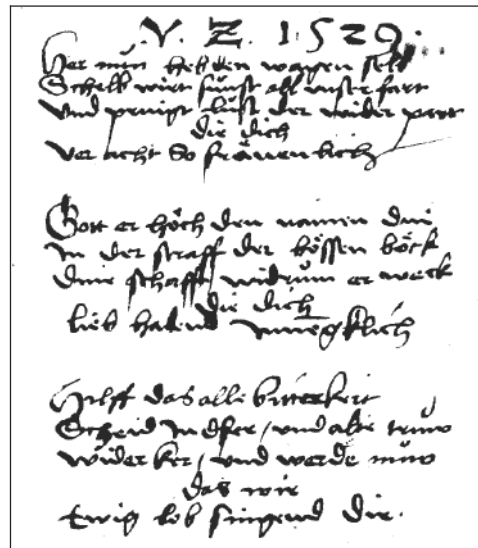 .V. Z. 1529.
Her nun heb den wagen selb
Schelb wirt sunst all unser fart
Und
der wider part
die dich
Ver acht So fräuenlich
Gott er höch den namen din
In der straff der bössen böck
Dine schaff widrum er weck
die dich
lieb habend innegklich
Hilff das alle bitterkeit
Scheid In dfer / und alte trüw
widerker / und werde nüw
das wir
Ewig lob singend dir.